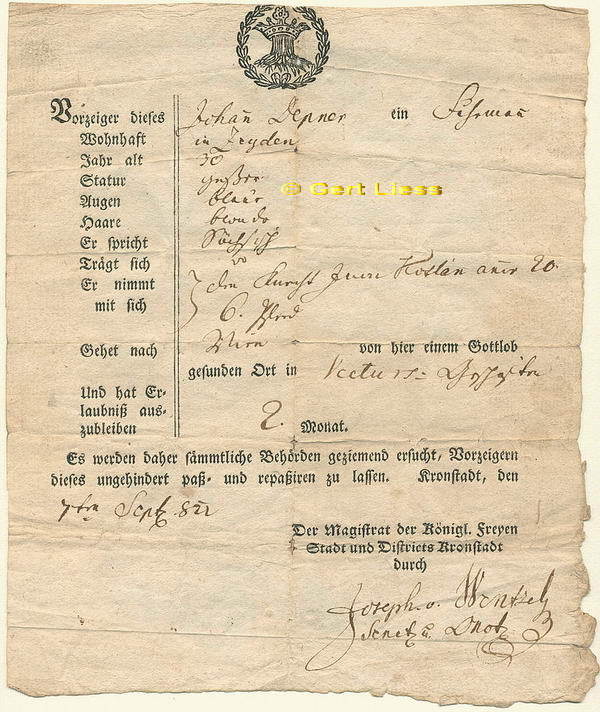 Vorzeiger dieses Johann Depner ein Fuhrmann
Wohnhaft in Zeyden
Jahr alt 30
Statur großer
Augen blaue
Haare blonde
Er spricht Sächsisch
Trägt sich
Er nimmt den Knecht Juon Koslan annor 20
mit sich 6. Pferd
Gehet nach Wien von hier einem Gottlob
gesunden Ort in Vecturs-
Und hat Er-
laubniß aus-
zubleiben 2. Monat.
Es werden daher sämmtliche Behörden geziemend ersucht, Vorzeigern
dieses ungehindert paß- und repaßiren zu lassen. Kronstadt, den
7ten Sept. 822
Der Magistrat der Königl. Freyen
Stadt und Districts Kronstadt
durch
Joseph v. Wentzel
© Gert Liess